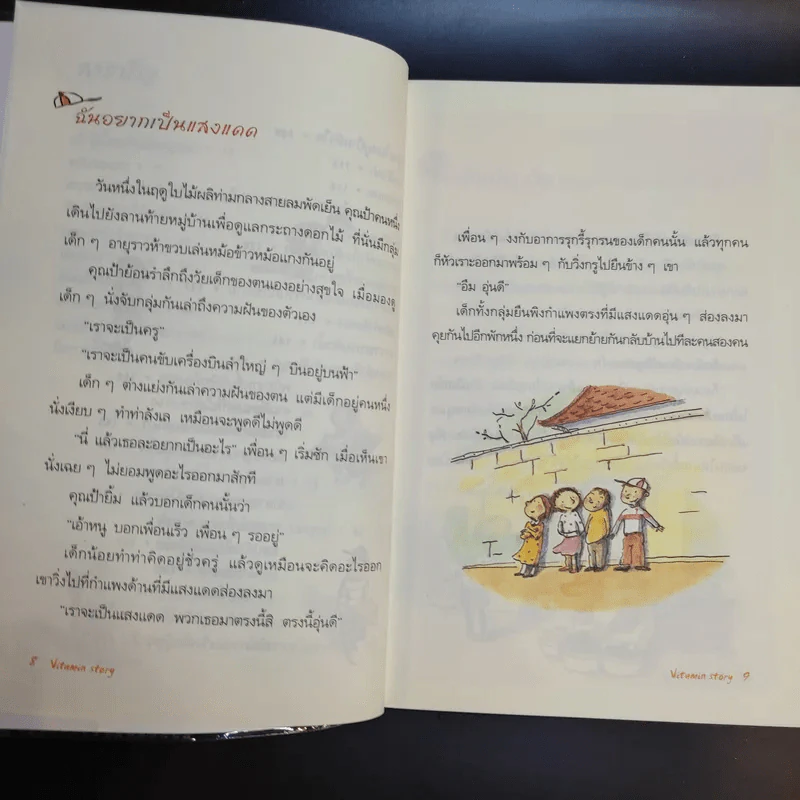 ฉันอยากเป็นแสงแดด
วันหนึ่งในฤดูใบไม้ผลิท่ามกลางสายลมพัดเย็น คุณป้าคนหนึ่ง
เดินไปยังลานท้ายหมู่บ้านเพื่อดูแลกระถางดอกไม้ ที่นั่นมีกลุ่ม
เด็ก ๆ อายุราวห้าขวบเล่นหม้อข้าวหม้อแกงกันอยู่
คุณป้าย้อนรำลึกถึงวัยเด็กของตนเองอย่างสุขใจ เมื่อมองดู
เด็ก ๆ นั่งจับกลุ่มกันเล่าถึงความฝันของตัวเอง
"เราจะเป็นครู"
"เราจะเป็นคนขับเครื่องบินลำใหญ่ ๆ บินอยู่บนฟ้า"
เด็ก ๆ ต่างแย่งกันเล่าความฝันของตน แต่มีเด็กอยู่คนหนึ่ง
นั่งเงียบ ๆ ทำท่าลังเล เหมือนจะพูดดีไม่พูดดี
"นี่ แล้วเธอละอยากเป็นอะไร" เพื่อน ๆ เริ่มซัก เมื่อเห็นเขา
นั่งเฉย ๆ ไม่ยอมพูดอะไรออกมาสักที
คุณป้ายิ้ม แล้วบอกเด็กคนนั้นว่า
"เอ้าหนู บอกเพื่อนเร็ว เพื่อน ๆ รออยู่"
เด็กน้อยทำท่าคิดอยู่ชั่วครู่ แล้วดูเหมือนจะคิดอะไรออก
เขาวิ่งไปที่กำแพงด้านที่มีแสงแดดส่องลงมา
"เราจะเป็นแสงแดด พวกเธอมาตรงนี้สิ ตรงนี้อุ่นดี"
8 Vitamin story
เพื่อน ๆ งงกับอาการรุกรี้รุกรนของเด็กคนนั้น แล้วทุกคน
ก็หัวเราะออกมาพร้อม ๆ กับวิ่งกรูไปยืนข้าง ๆ เขา
"อืม อุ่นดี"
เด็กทั้งกลุ่มยืนพิงกำแพงตรงที่มีแสงแดดอุ่น ๆ ส่องลงมา
คุยกันไปอีกพักหนึ่ง ก่อนที่จะแยกย้ายกันกลับบ้านไปทีละคนสองคน
Vitamin story 9